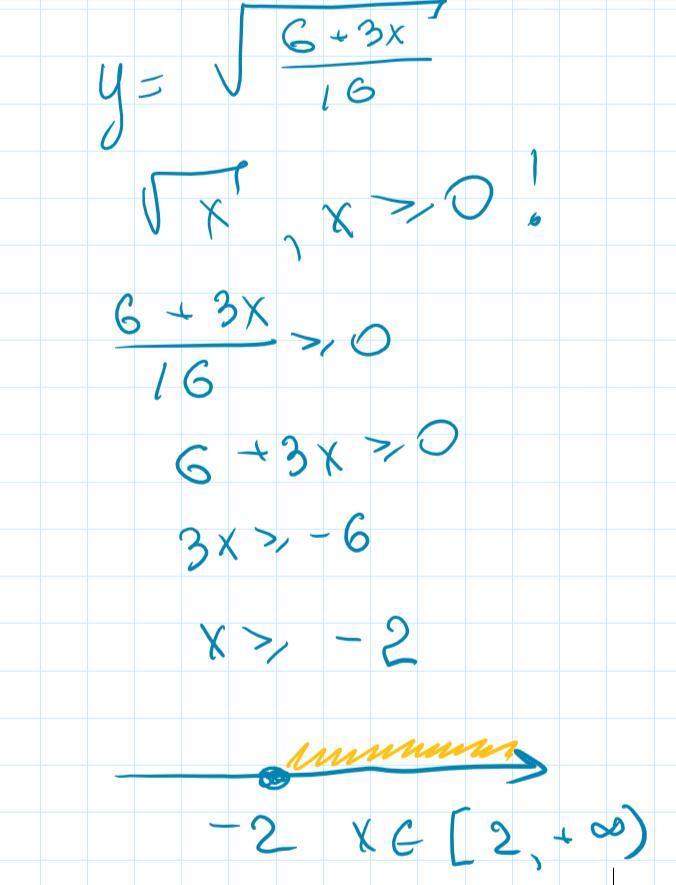 y = √((6 + 3x)/16)
√x , x ⩾ 0 !
(6 + 3x)/16 ⩾ 0
6 + 3x ⩾ 0
3x ⩾ -6
x ⩾ -2
-2 x ∈ [2, +∞)